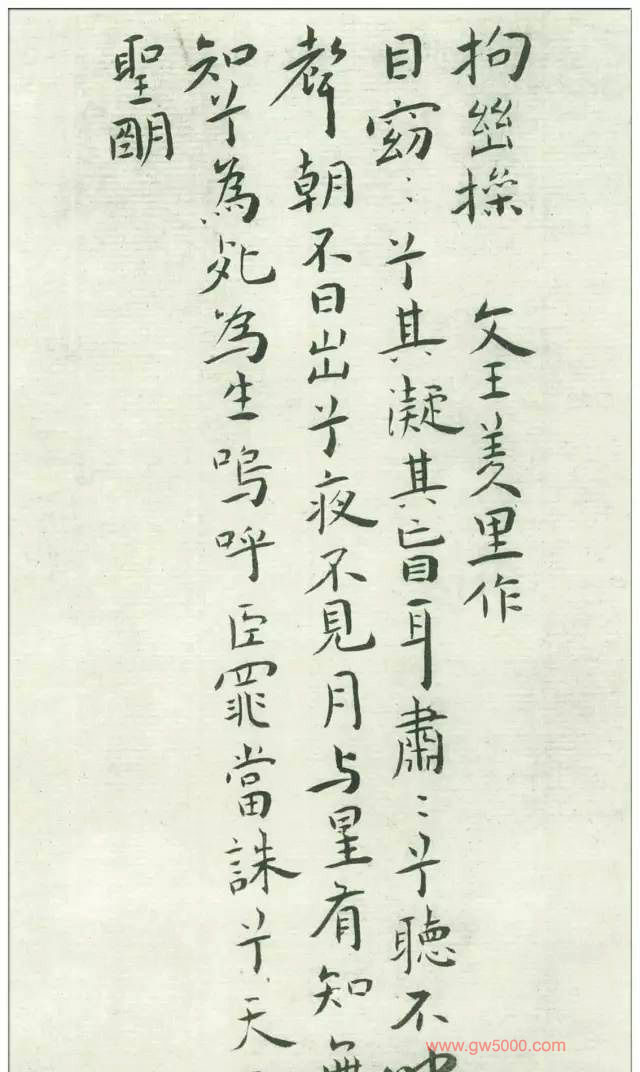 拘幽操 文王羑里作
目窈〻兮其凝其盲耳肅〻兮聽不
聲朝不日出兮夜不見月与星有知無
知兮為死為生嗚呼臣罪當誅兮天
聖明
www.gw5000.com